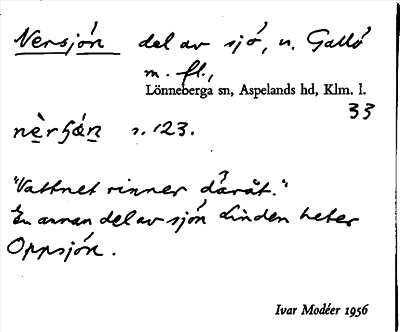 Nersjón del av sjó, n. Galló
m. fl.,
Lönneberga sn, Aspelands hd, Klm. l.
33
s. 123.
"Vattnet rinner dåråt."
En annan del av sjón Linden heter
Oppsjón.
Ivar Modéer 1956